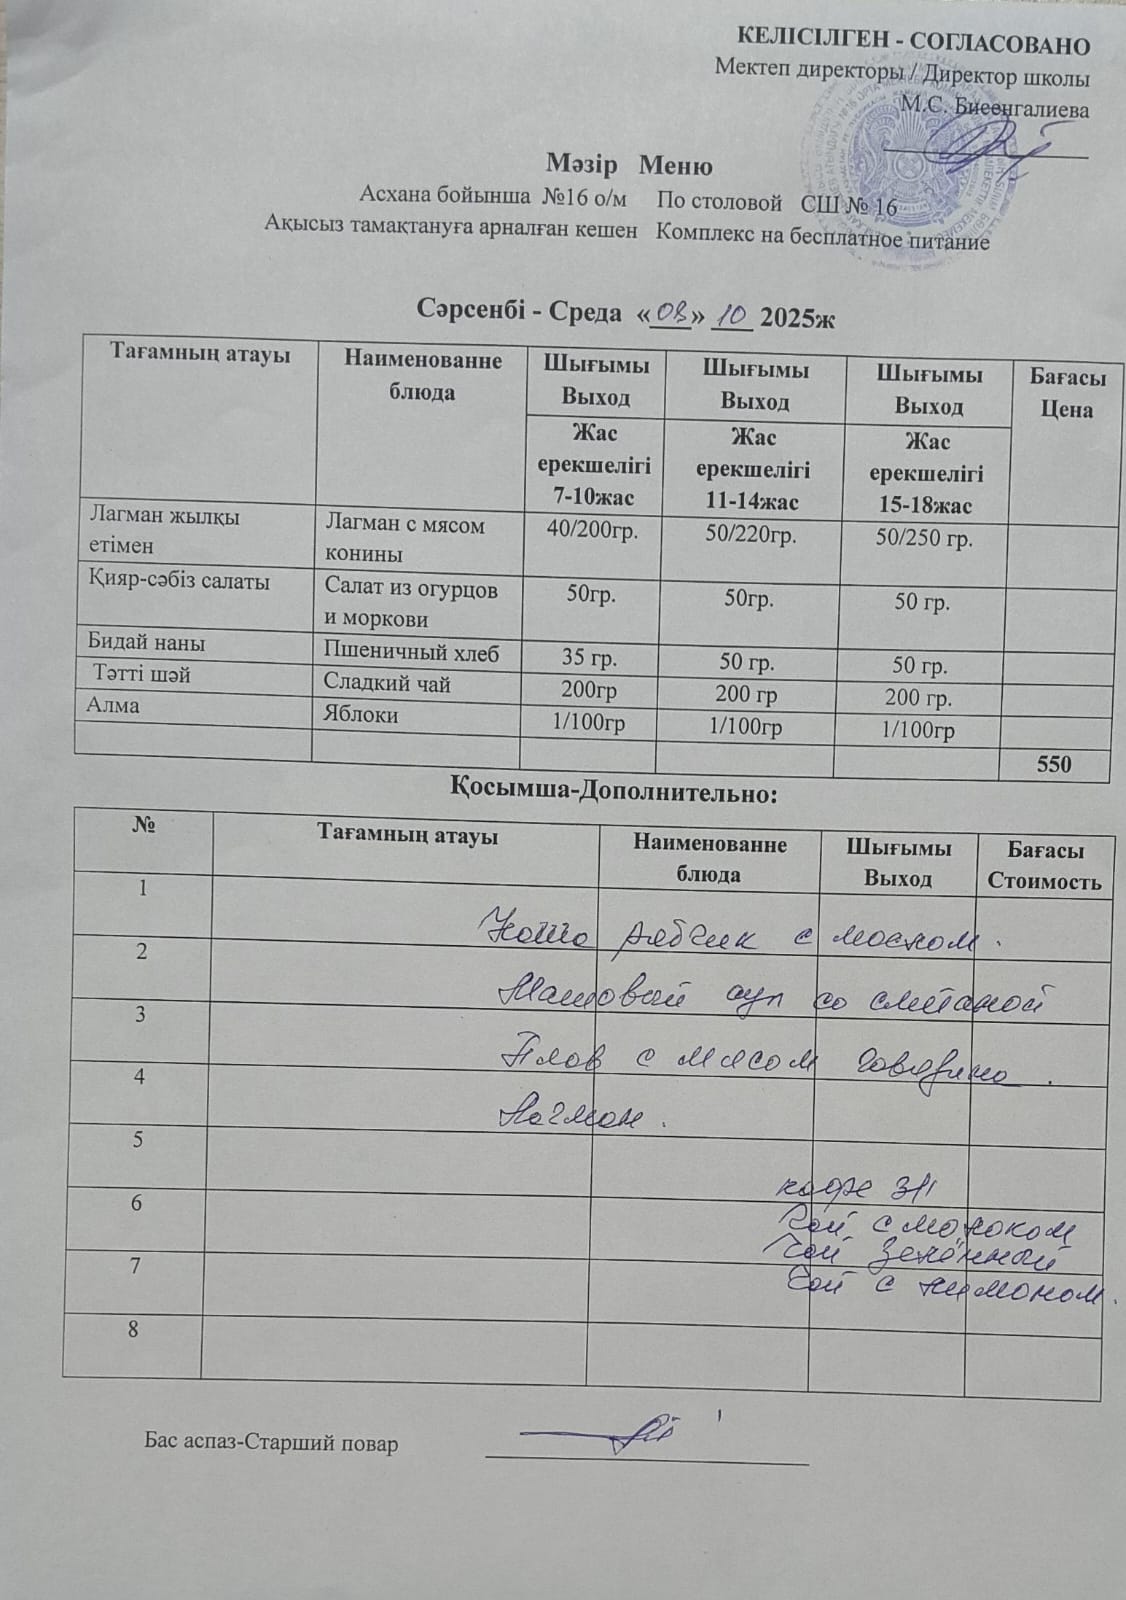 КЕЛІСІЛГЕН - СОГЛАСОВАНО
Мектеп директоры / Директор школы
М.С. Бисенгалиева
Мәзір Меню
Асхана бойынша №16 о/м По столовой СШ № 16
Ақысыз тамақтануға арналған кешен Комплекс на бесплатное питание
Сәрсенбі - Среда «08» 10 2025ж
Тағамның атауы Наименованне блюда Шығымы Выход Шығымы Выход Шығымы Выход Бағасы Цена
Жас ерекшелігі 7-10жас Жас ерекшелігі 11-14жас Жас ерекшелігі 15-18жас
Лагман жылқы етімен Лагман с мясом конины 40/200гр. 50/220гр. 50/250 гр.
Қияр-сәбіз салаты Салат из огурцов и моркови 50гр. 50гр. 50 гр.
Бидай наны Пшеничный хлеб 35 гр. 50 гр. 50 гр.
Тәтті шәй Сладкий чай 200гр 200 гр 200 гр.
Алма Яблоки 1/100гр 1/100гр 1/100гр
550
Қосымша-Дополнительно:
№ Тағамның атауы Наименованне блюда Шығымы Выход Бағасы Стоимость
1 Каша Рябчик с маслом.
2 Машовый суп со сметаной
3 Плов с мясом говядина.
4 Лагман.
5 кофе 3/1
6 Чай с молоком
Чай Зелённый
7 Чай с лимоном.
8
Бас аспаз-Старший повар